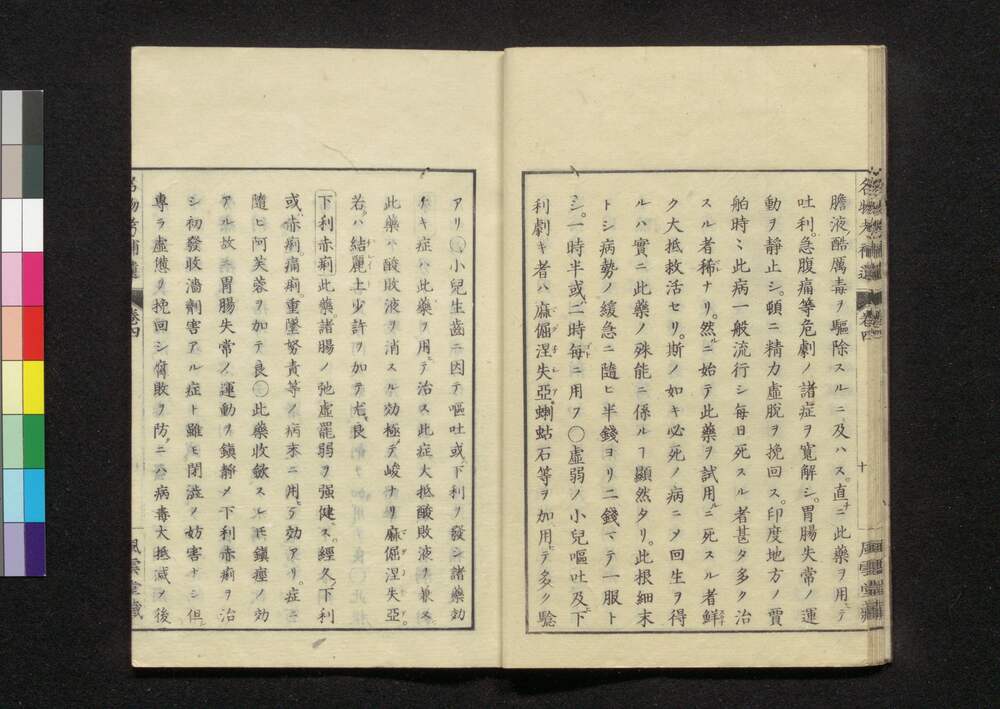 膽液酷厲毒ヲ驅除スルニ及ハス。直ニ此藥ヲ用テ
吐利。急腹痛等危劇ノ諸症ヲ寛解シ。胃腸失常ノ運
動ヲ靜止シ。頓ニ精力虛脫ヲ挽回ス。印度地方ノ賈
舶時〻此病一般流行シ毎日死スル者甚タ多ク治
スル者稀ナリ。然ニ始テ此藥ヲ試用ニ死スル者鮮
ク大抵救活セリ。斯ノ如キ必死ノ病ニメ回生ヲ得
ルハ實ニ此藥ノ殊能ニ係ルヿ顯然タリ。此根細末
トシ病勢ノ緩急ニ隨ヒ半錢ヨリ二錢マテ一服ト
シ。一時半或二時毎ニ用フ〇虛弱ノ小兒嘔吐及下
利劇キ者ハ麻倔涅失亞蝲蛄石等ヲ加用テ多ク驗
名物考補遺 卷四 十 風雲堂藏
アリ〇小兒生齒ニ因テ嘔吐或下利ヲ發シ諸藥効
ナキ症ハ此藥ヲ用テ治ス此症大抵酸敗液ヲ兼ス
此藥ハ酸敗液ヲ消スル効極テ峻ナリ麻倔涅失亞
若ハ結麗土少許ヲ加テ尤良
下利赤痢 此藥諸腸ノ弛虛罷弱ヲ强健ス。經久下利
或赤痢。痛痢重墜努責等ノ病末ニ用テ効アリ。症ニ
隨ヒ阿芙蓉ヲ加テ良〇此藥收斂スルモ鎭痙ノ効
アル故ニ胃腸失常ノ運動ヲ鎭靜メ下利赤痢ヲ治
シ初發收濇劑害アル症ト雖モ閉澁ノ妨害ナシ但
專ラ虛憊ヲ挽回シ腐敗ヲ防ニハ病毒大抵減ノ後
名物考補遺 卷四 風雲堂藏